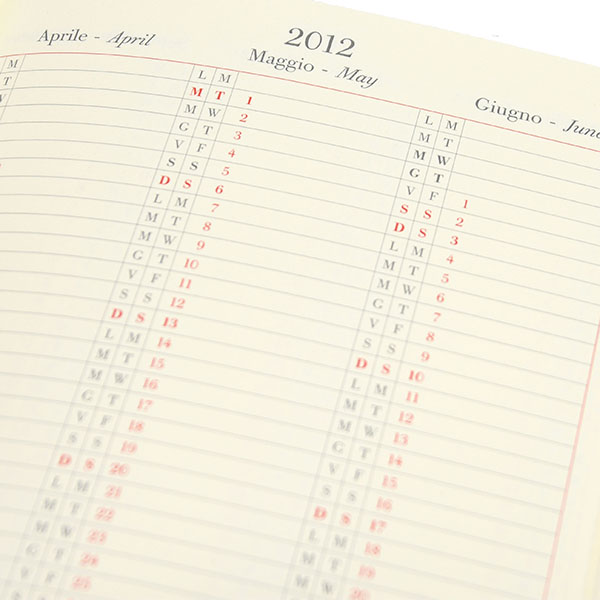 2012
Aprile - April
Maggio - May
Giugno - June
M
T
W
L M
M T 1
M W 2
G T 3
V F 4
S S 5
D S 6
L M 7
M T 8
M W 9
G T 10
V F 11
S S 12
D S 13
L M 14
M T 15
M W 16
G T 17
V F 18
S S 19
D S 20
L M 21
M T 22
M W 23
G T 24
V F 25
L M
M T
M W
G T
V F 1
S S 2
D S 3
L M 4
M T 5
M W 6
G T 7
V F 8
S S 9
D S 10
L M 11
M T 12
M W 13
G T 14
V F 15
S S 16
D S 17
L M 18
M T 19
M W 20